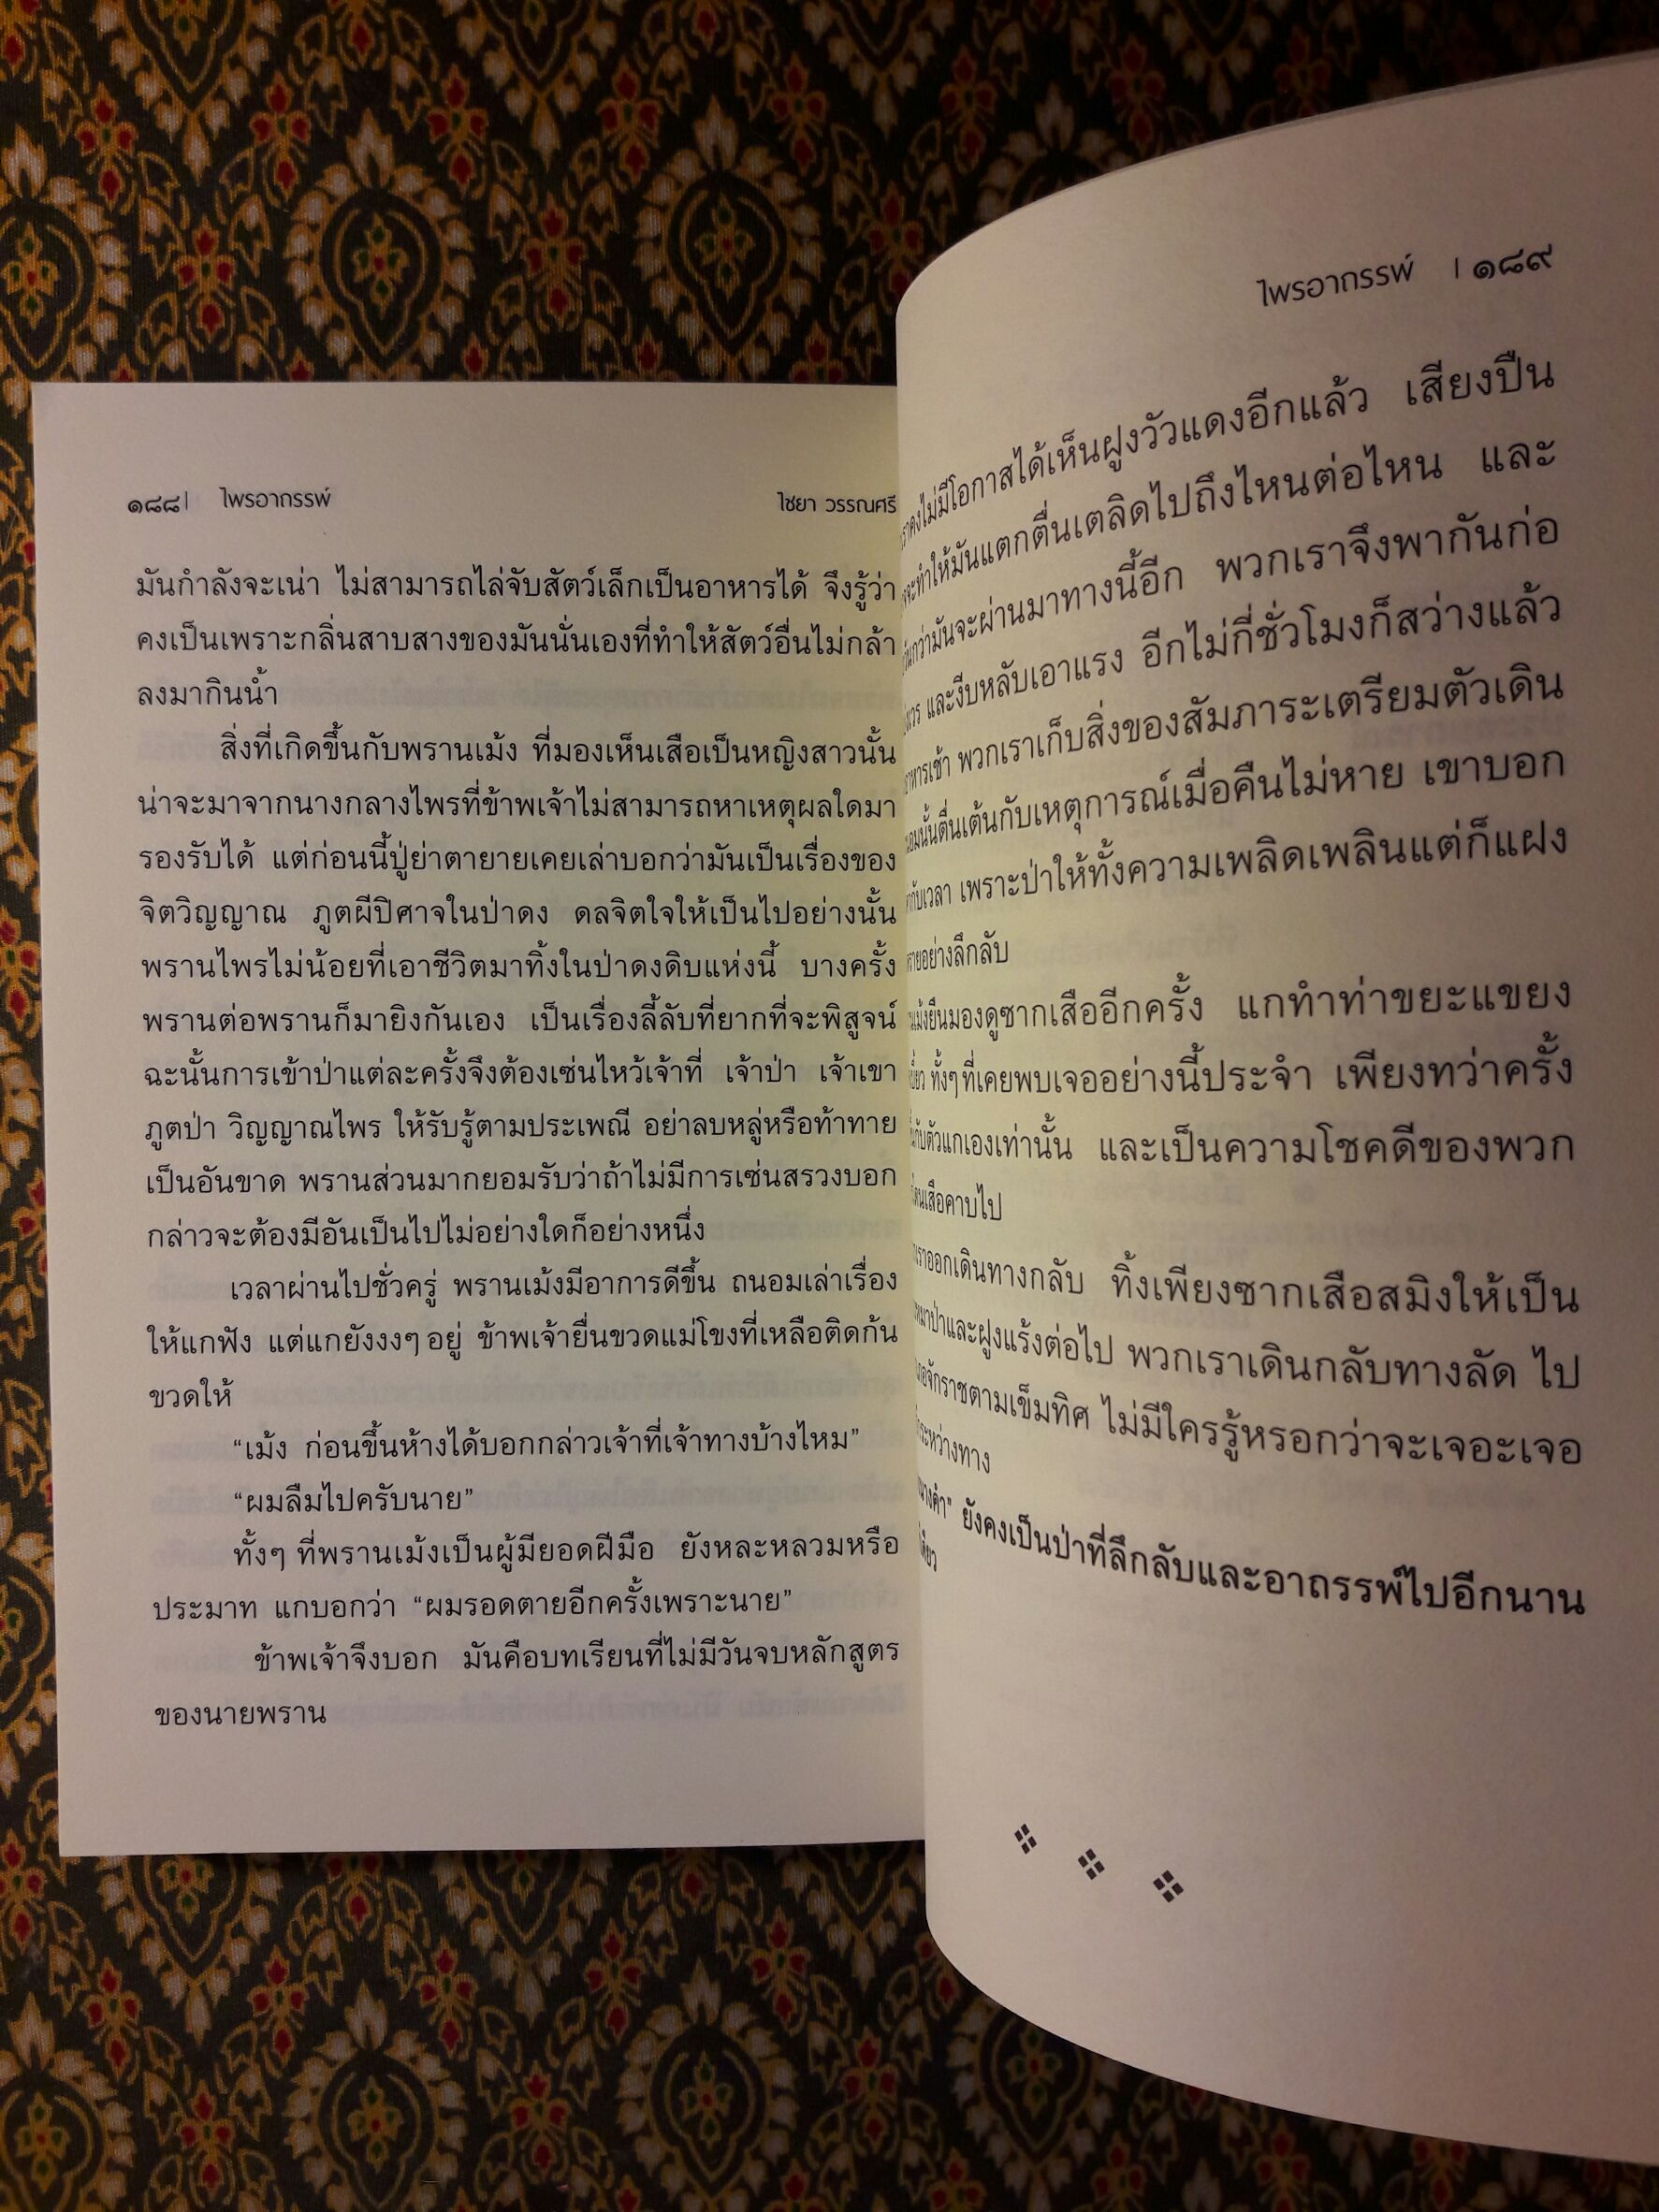 ๑๘๘ | ไพรอาถรรพ์ ไชยา วรรณศรี
มันกำลังจะเน่า ไม่สามารถไล่จับสัตว์เล็กเป็นอาหารได้ จึงรู้ว่า
คงเป็นเพราะกลิ่นสาบสางของมันนั่นเองที่ทำให้สัตว์อื่นไม่กล้า
ลงมากินน้ำ
สิ่งที่เกิดขึ้นกับพรานเม้ง ที่มองเห็นเสือเป็นหญิงสาวนั้น
น่าจะมาจากนางกลางไพรที่ข้าพเจ้าไม่สามารถหาเหตุผลใดมา
รองรับได้ แต่ก่อนนี้ปู่ย่าตายายเคยเล่าบอกว่ามันเป็นเรื่องของ
จิตวิญญาณ ภูตผีปิศาจในป่าดง ดลจิตใจให้เป็นไปอย่างนั้น
พรานไพรไม่น้อยที่เอาชีวิตมาทิ้งในป่าดงดิบแห่งนี้ บางครั้ง
พรานต่อพรานก็มายิงกันเอง เป็นเรื่องลี้ลับที่ยากที่จะพิสูจน์
ฉะนั้นการเข้าป่าแต่ละครั้งจึงต้องเซ่นไหว้เจ้าที่ เจ้าป่า เจ้าเขา
ภูตป่า วิญญาณไพร ให้รับรู้ตามประเพณี อย่าลบหลู่หรือท้าทาย
เป็นอันขาด พรานส่วนมากยอมรับว่าถ้าไม่มีการเซ่นสรวงบอก
กล่าวจะต้องมีอันเป็นไปไม่อย่างใดก็อย่างหนึ่ง
เวลาผ่านไปชั่วครู่ พรานเม้งมีอาการดีขึ้น ถนอมเล่าเรื่อง
ให้แกฟัง แต่แกยังงงๆ อยู่ ข้าพเจ้ายื่นขวดแม่โขงที่เหลือติดก้น
ขวดให้
“เม้ง ก่อนขึ้นห้างได้บอกกล่าวเจ้าที่เจ้าทางบ้างไหม”
“ผมลืมไปครับนาย”
ทั้งๆ ที่พรานเม้งเป็นผู้มียอดฝีมือ ยังหละหลวมหรือ
ประมาท แกบอกว่า “ผมรอดตายอีกครั้งเพราะนาย”
ข้าพเจ้าจึงบอก มันคือบทเรียนที่ไม่มีวันจบหลักสูตร
ของนายพราน
ไพรอาถรรพ์ | ๑๘๙
ราคงไม่มีโอกาสได้เห็นฝูงวัวแดงอีกแล้ว เสียงปืน
จะทำให้มันแตกตื่นเตลิดไปถึงไหนต่อไหน และ
กว่ามันจะผ่านมาทางนี้อีก พวกเราจึงพากันก่อ
และงีบหลับเอาแรง อีกไม่กี่ชั่วโมงก็สว่างแล้ว
หารเช้า พวกเราเก็บสิ่งของสัมภาระเตรียมตัวเดิน
อมนั้นตื่นเต้นกับเหตุการณ์เมื่อคืนไม่หาย เขาบอก
กับเวลา เพราะป่าให้ทั้งความเพลิดเพลินแต่ก็แฝง
ายอย่างลึกลับ
เม้งยืนมองดูซากเสืออีกครั้ง แกทำท่าขยะแขยง
ทั้งๆ ที่เคยพบเจออย่างนี้ประจำ เพียงทว่าครั้ง
กับตัวแกเองเท่านั้น และเป็นความโชคดีของพวก
เสือคาบไป
ราออกเดินทางกลับ ทิ้งเพียงซากเสือสมิงให้เป็น
มาป่าและฝูงแร้งต่อไป พวกเราเดินกลับทางลัด ไป
อจักราชตามเข็มทิศ ไม่มีใครรู้หรอกว่าจะเจอะเจอ
ระหว่างทาง
างดำ” ยังคงเป็นป่าที่ลึกลับและอาถรรพ์ไปอีกนาน